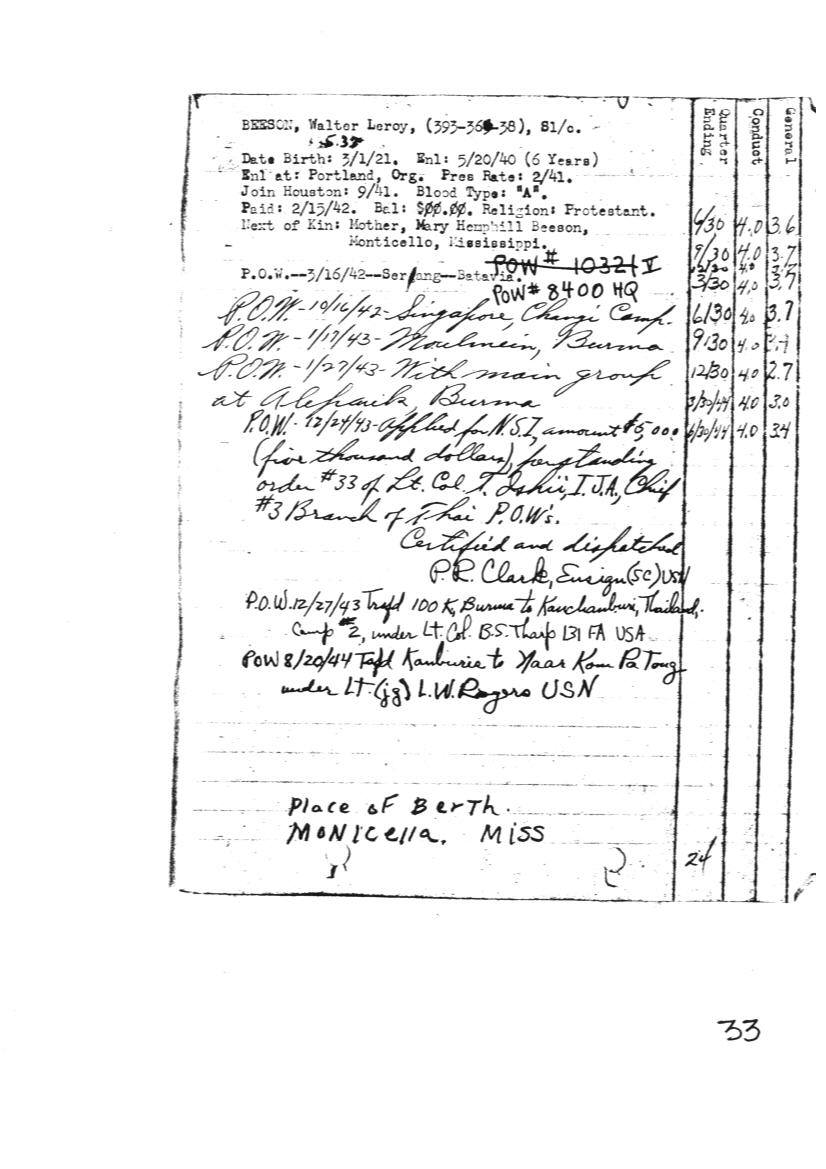 BEESON, Walter Leroy, (393-36-38), S1/c.
5.37
Date Birth: 3/1/21. Enl: 5/20/40 (6 Years)
Enl at: Portland, Org. Pres Rate: 2/41.
Join Houston: 9/41. Blood Type: "A".
Paid: 2/15/42. Bal: $00.00. Religion: Protestant.
Next of Kin: Mother, Mary Hemphill Beeson,
Monticello, Mississippi.
POW # 10321 V
P.O.W.--3/16/42--Serang--Batavia.
POW# 8400 HQ
P.O.W.-10/16/42-Singapore, Changi Camp.
P.O.W.-1/17/43-Moulmein, Burma
P.O.W.-1/27/43-With main group
at Alepauk, Burma
P.O.W.-12/24/43-Applied for N.S.I, amount $5,000
(five thousand dollars), per standing
order #33 of Lt. Col T. Ishii, I.J.A, Chief
#3 Branch of Thai P.O.W's.
Certified and dispatched
P.R. Clark, Ensign (SC) USN
P.O.W.12/27/43 Trafd 100 K, Burma to Kanchanburi, Thailand,
Camp #2, under Lt. Col. B.S. Tharp 131 FA USA
POW 8/20/44 Tafd Kanburie to Naar Kom Pa Tong
under Lt.(jg) L.W. Rogers USN
Place oF BerTh.
MoNIcella. MiSS
Quarter Ending Conduct General
6/30 4.0 3.6
9/30 4.0 3.7
12/30 4.0 3.7
3/30 4.0 3.7
6/30 4.0 3.7
9/30 4.0
12/30 4.0 2.7
3/30/44 4.0 3.0
6/30/44 4.0 3.4
24
33